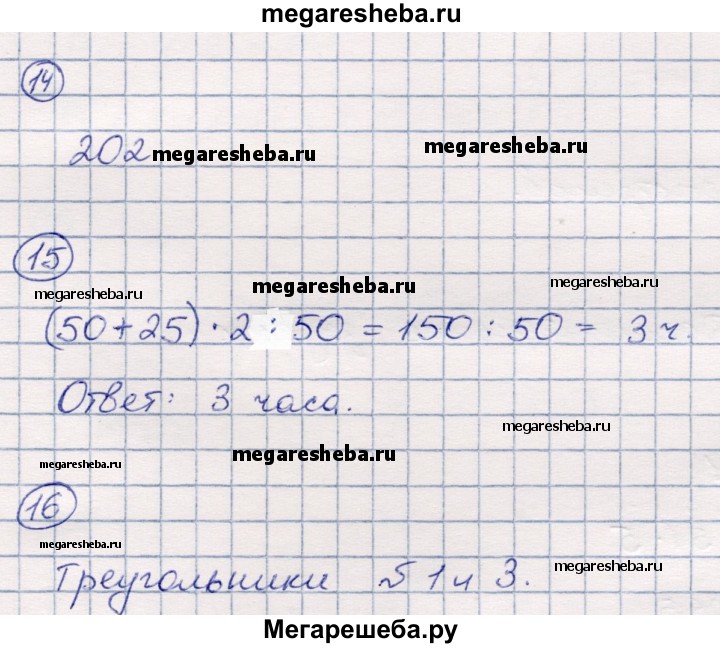 megaresheba.ru
14
202 megaresheba.ru megaresheba.ru
15
megaresheba.ru megaresheba.ru megaresheba.ru
(50+25)·2:50=150:50= 3 ч.
Ответ: 3 часа.
megaresheba.ru
megaresheba.ru megaresheba.ru
16
megaresheba.ru
Треугольники 1 и 3. megaresheba.ru
Мегарешеба.ру